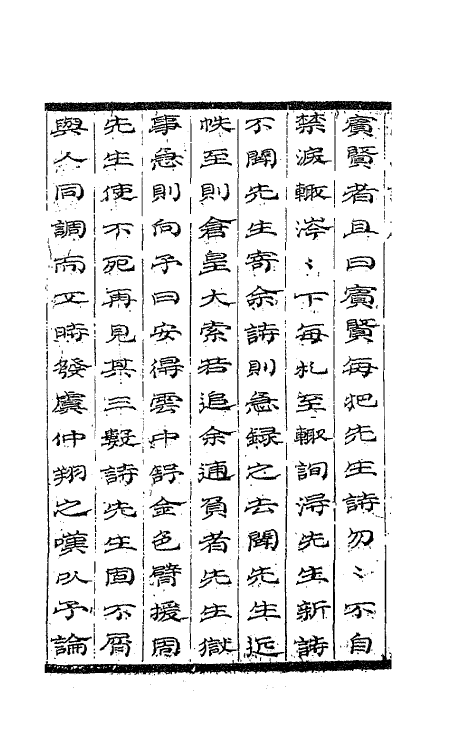 賓賢者且曰賓賢每把先生詩勿〻不自
禁淚輙涔〻下每札至輙詢潯先生新詩
不聞先生寄余詩則急録之去聞先生近
帙至則倉皇大索若追余逋負者先生獄
事急則向予曰安得雲中舒金色臂援周
先生使不死再見其三髮詩先生固不屑
與人同調而又時發虞仲翔之嘆以予論